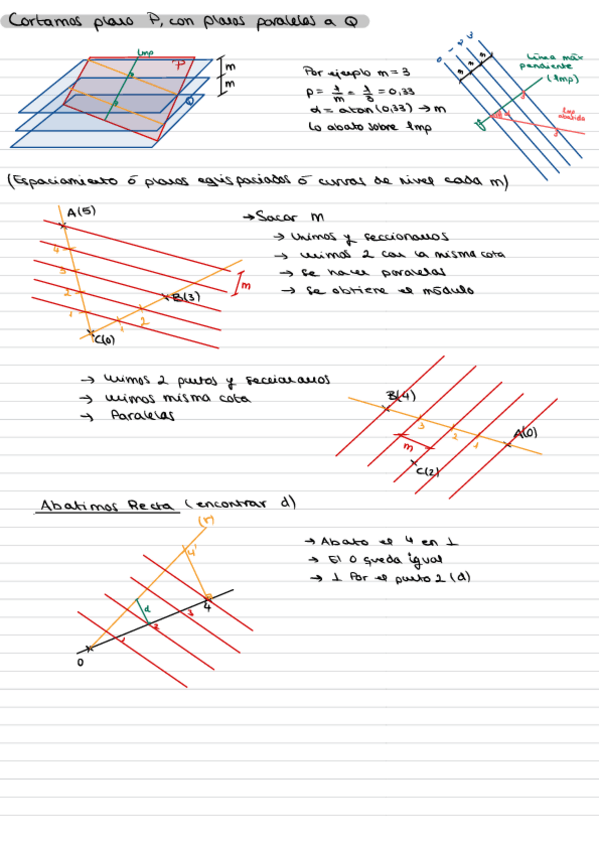 Cortamos plano P, con planos paralelos a Q
lmp
P
Q
m
m
Por ejemplo m = 3
p = 1/m = 1/3 = 0,33
α = atan (0,33) → m
Lo abato sobre lmp
0 1 2 3
m m m
Línea máx
pendiente
(lmp)
lmp
abatida
(Espaciamiento ó planos equiespaciados ó curvas de nivel cada m)
A(5)
4
3
2
1
C(0)
1
2
B(3)
m
→ Sacar m
→ Unimos y seccionamos
→ unimos 2 con la misma cota
→ se hacen paralelas
→ se obtiene el módulo
→ unimos 2 puntos y seccionamos
→ unimos misma cota
→ Paralelas
B(4)
3
2
1
A(0)
m
C(2)
Abatimos Recta (encontrar d)
(r)
4'
d
0
1
2
3
4
→ Abato el 4 en ⊥
→ El 0 queda igual
→ ⊥ Por el punto 2 (d)